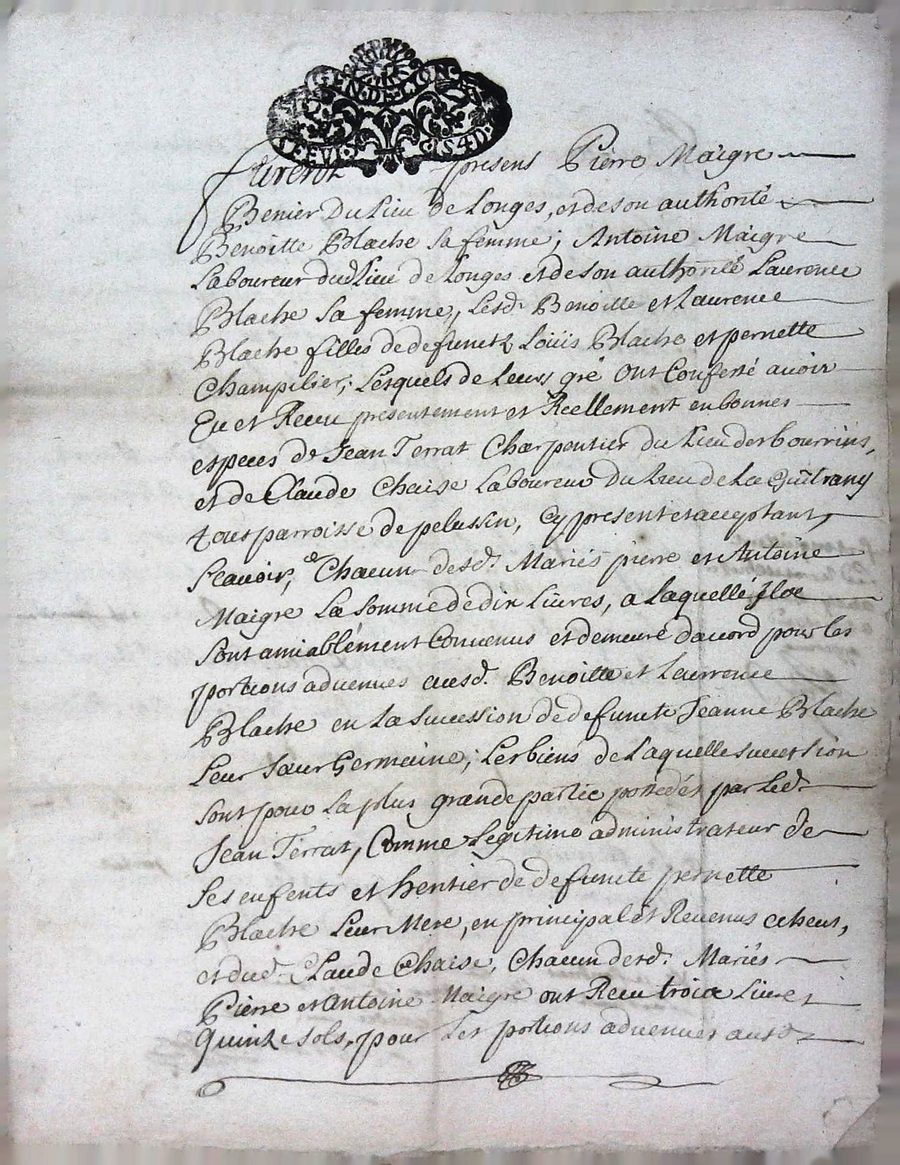 GEN. DE LION
Furent presens Pierre Maigre
Benier Du Lieu de Longes, et de son authorité
Benoitte Blache sa femme; Antoine Maigre
Laboureur dud. Lieu de Longes et de son authorité Laurence
Blache sa femme, Lesd. Benoitte et Laurence
Blache filles de defunctz Loüis Blache et pernette
Champilier; Lesquels de Leurs gré ont Confessé avoir
Eu et Receu presentement et Réellement en bonnes
especes de Jean Terrat Charpentier du Lieu des bourrins,
et de Claude Chaise Laboureur Du Lieu de La
tous parroisse de pelussin, cy present et acceptant,
Scavoir, Chacun desd. Mariés pierre et Antoine
Maigre La somme de dix Livres, a Laquelle Ilz
sont amiablement Convenus et demeuré d'acord pour les
portions advenues ausd. Benoitte et Laurence
Blache en La succession de defuncte Jeanne Blache
Leur sœur Germaine; Les biens de Laquelle succession
sont pour La plus grande partie possedés par Led.
Jean Terrat, Comme Legitime administrateur de
ses enfents et heritier de defuncte pernette
Blache Leur Mere, en principal et Revenus echeus,
et dud. Claude Chaise, Chacun desd. Mariés
Pierre et Antoine Maigre ont Receu trois Livres
quinze sols, pour Les portions advenues ausd.